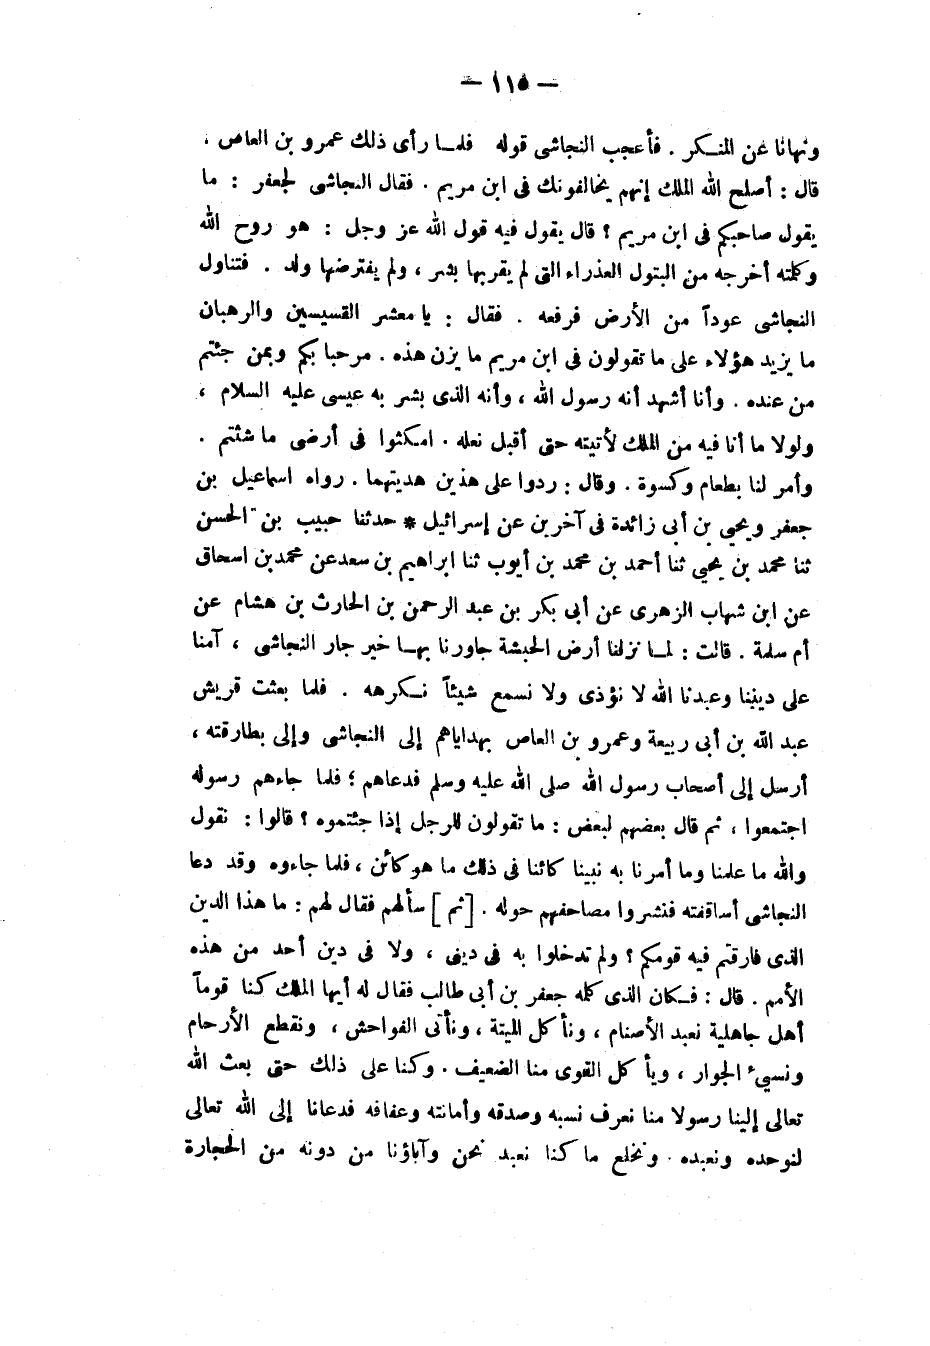 — ١١٥ —
ونهانا عن المنـكر . فأعجب النجاشى قوله فلمـا رأى ذلك عمرو بن العاص ،
قال : أصلح الله الملك إنهم يخالفونك فى ابن مريم . فقال النجاشى لجعفر : ما
يقول صاحبكم فى ابن مريم ؟ قال يقول فيه قول الله عز وجل : هو روح الله
وكلمته أخرجه من البتول العذراء التى لم يقربها بشر ، ولم يفترضها ولد . فتناول
النجاشى عوداً من الأرض فرفعه . فقال : يا معشر القسيسين والرهبان
ما يزيد هؤلاء على ما تقولون فى ابن مريم ما يزن هذه . مرحبا بكم وبمن جئتم
من عنده . وأنا أشهد أنه رسول الله ، وأنه الذى بشر به عيسى عليه السلام ،
ولولا ما أنا فيه من الملك لأتيته حتى أقبل نعله . امكثوا فى أرضى ما شئتم .
وأمر لنا بطعام وكسوة . وقال : ردوا على هذين هديتهما . رواه اسماعيل بن
جعفر ويحيى بن أبى زائدة فى آخرين عن إسرائيل * حدثنا حبيب بن الحسن
ثنا محمد بن يحيى ثنا أحمد بن محمد بن أيوب ثنا ابراهيم بن سعدعن محمدبن اسحاق
عن ابن شهاب الزهرى عن أبى بكر بن عبد الرحمن بن الحارث بن هشام عن
أم سلمة . قالت : لمـا نزلنا أرض الحبشة جاورنا بهـا خير جار النجاشى ، آمنا
على ديننا وعبدنا الله لا نؤذى ولا نسمع شيئاً نـكرهه . فلما بعثت قريش
عبد الله بن أبى ربيعة وعمرو بن العاص بهداياهم إلى النجاشى وإلى بطارقته ،
أرسل إلى أصحاب رسول الله صلى الله عليه وسلم فدعاهم ؛ فلما جاءهم رسوله
اجتمعوا ، ثم قال بعضهم لبعض : ما تقولون للرجل إذا جئتموه ؟ قالوا : نقول
والله ما علمنا وما أمرنا به نبينا كائنا فى ذلك ما هو كائن ، فلما جاءوه وقد دعا
النجاشى أساقفته فنشروا مصاحفهم حوله . [ثم] سألهم فقال لهم : ما هذا الدين
الذى فارقتم فيه قومكم ؟ ولم تدخلوا به فى دينى ، ولا فى دين أحد من هذه
الأمم . قال : فـكان الذى كلمه جعفر بن أبى طالب فقال له أيها الملك كنا قوماً
أهل جاهلية نعبد الأصنام ، ونأكل الميتة ، ونأتى الفواحش ، ونقطع الأرحام
ونسيء الجوار ، ويأكل القوى منا الضعيف . وكنا على ذلك حتى بعث الله
تعالى إلينا رسولا منا نعرف نسبه وصدقه وأمانته وعفافه فدعانا إلى الله تعالى
لنوحده ونعبده . ونخلع ما كنا نعبد نحن وآباؤنا من دونه من الحجارة